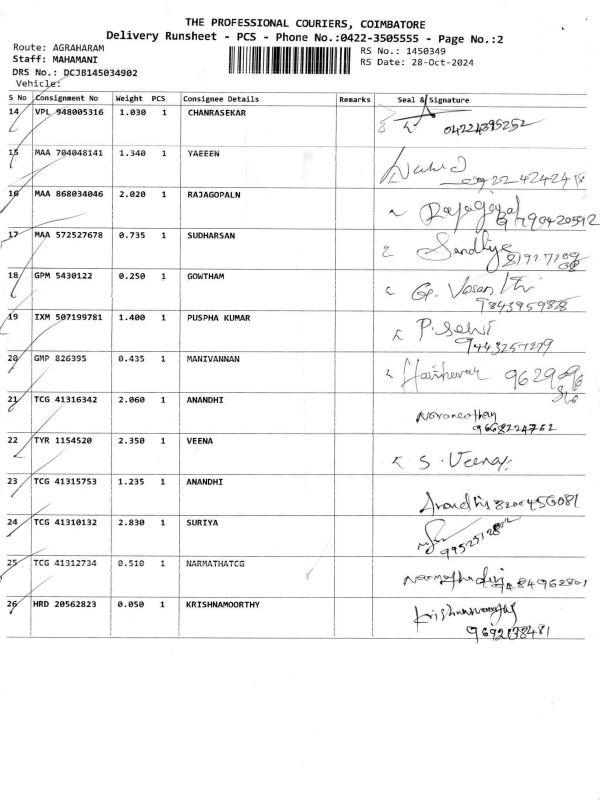 THE PROFESSIONAL COURIERS, COIMBATORE
Delivery Runsheet - PCS - Phone No.:0422-3505555 - Page No.:2
Route: AGRAHARAM
RS No.: 1450349
Staff: MAHAMANI
RS Date: 28-Oct-2024
DRS No.: DCJB145034902
Vehicle:
S No Consignment No Weight PCS Consignee Details Remarks Seal & Signature
14 VPL 948005316 1.030 1 CHANRASEKAR 04224395252
15 MAA 704048141 1.340 1 YAEEEN
16 MAA 868034046 2.020 1 RAJAGOPALN Rajagopal
17 MAA 572527678 0.735 1 SUDHARSAN Sandhiya
18 GPM 5430122 0.250 1 GOWTHAM Gp. Vasanthi
9843959828
19 IXM 507199781 1.400 1 PUSPHA KUMAR P. Selvi
9443257279
20 GMP 826395 0.435 1 MANIVANNAN
21 TCG 41316342 2.060 1 ANANDHI
9668224762
22 TYR 1154520 2.350 1 VEENA S. Veena
23 TCG 41315753 1.235 1 ANANDHI
24 TCG 41310132 2.830 1 SURIYA
25 TCG 41312734 0.510 1 NARMATHATCG
26 HRD 20562823 0.050 1 KRISHNAMOORTHY Krishnamoorthy
9692138481